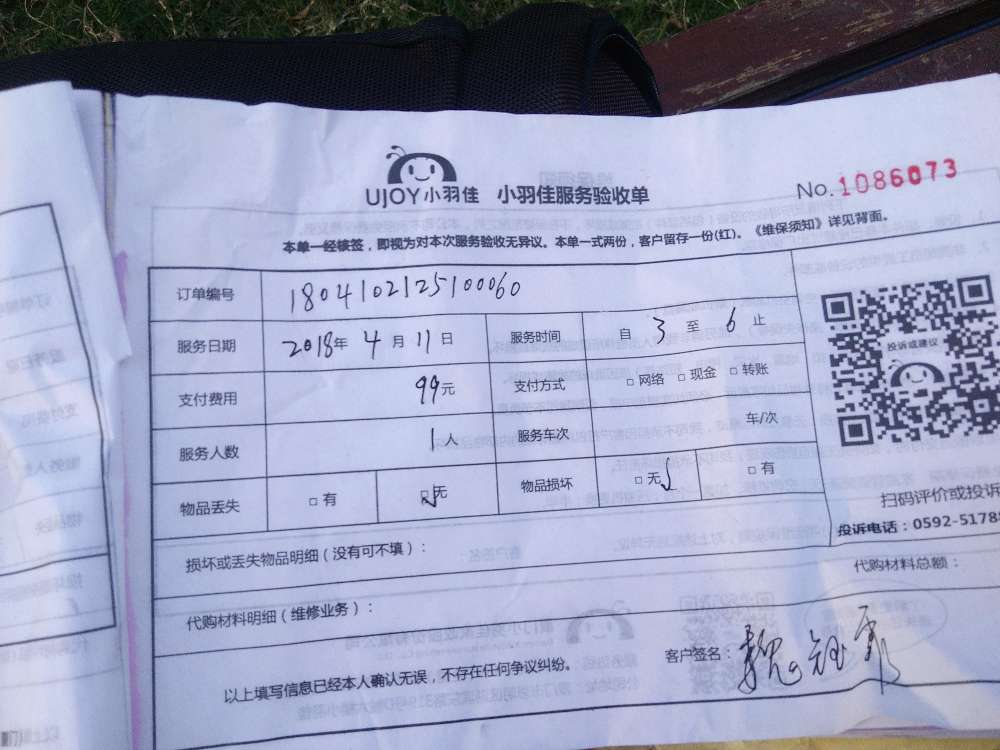 UJOY小羽佳 小羽佳服务验收单 No.1086073
本单一经核签，即视为对本次服务验收无异议。本单一式两份，客户留存一份(红)。《维保须知》详见背面。
订单编号 1804102125100060
服务日期 2018年 4月 11日 服务时间 自 3 至 6 止
支付费用 99元 支付方式 □网络 □现金 □转账
服务人数 1人 服务车次 车/次
物品丢失 □有 □无 物品损坏 □无 □有
投诉或建议
扫码评价或投诉
投诉电话：0592-5178
损坏或丢失物品明细（没有可不填）：
代购材料明细（维修业务）： 代购材料总额：
以上填写信息已经本人确认无误，不存在任何争议纠纷。 客户签名：